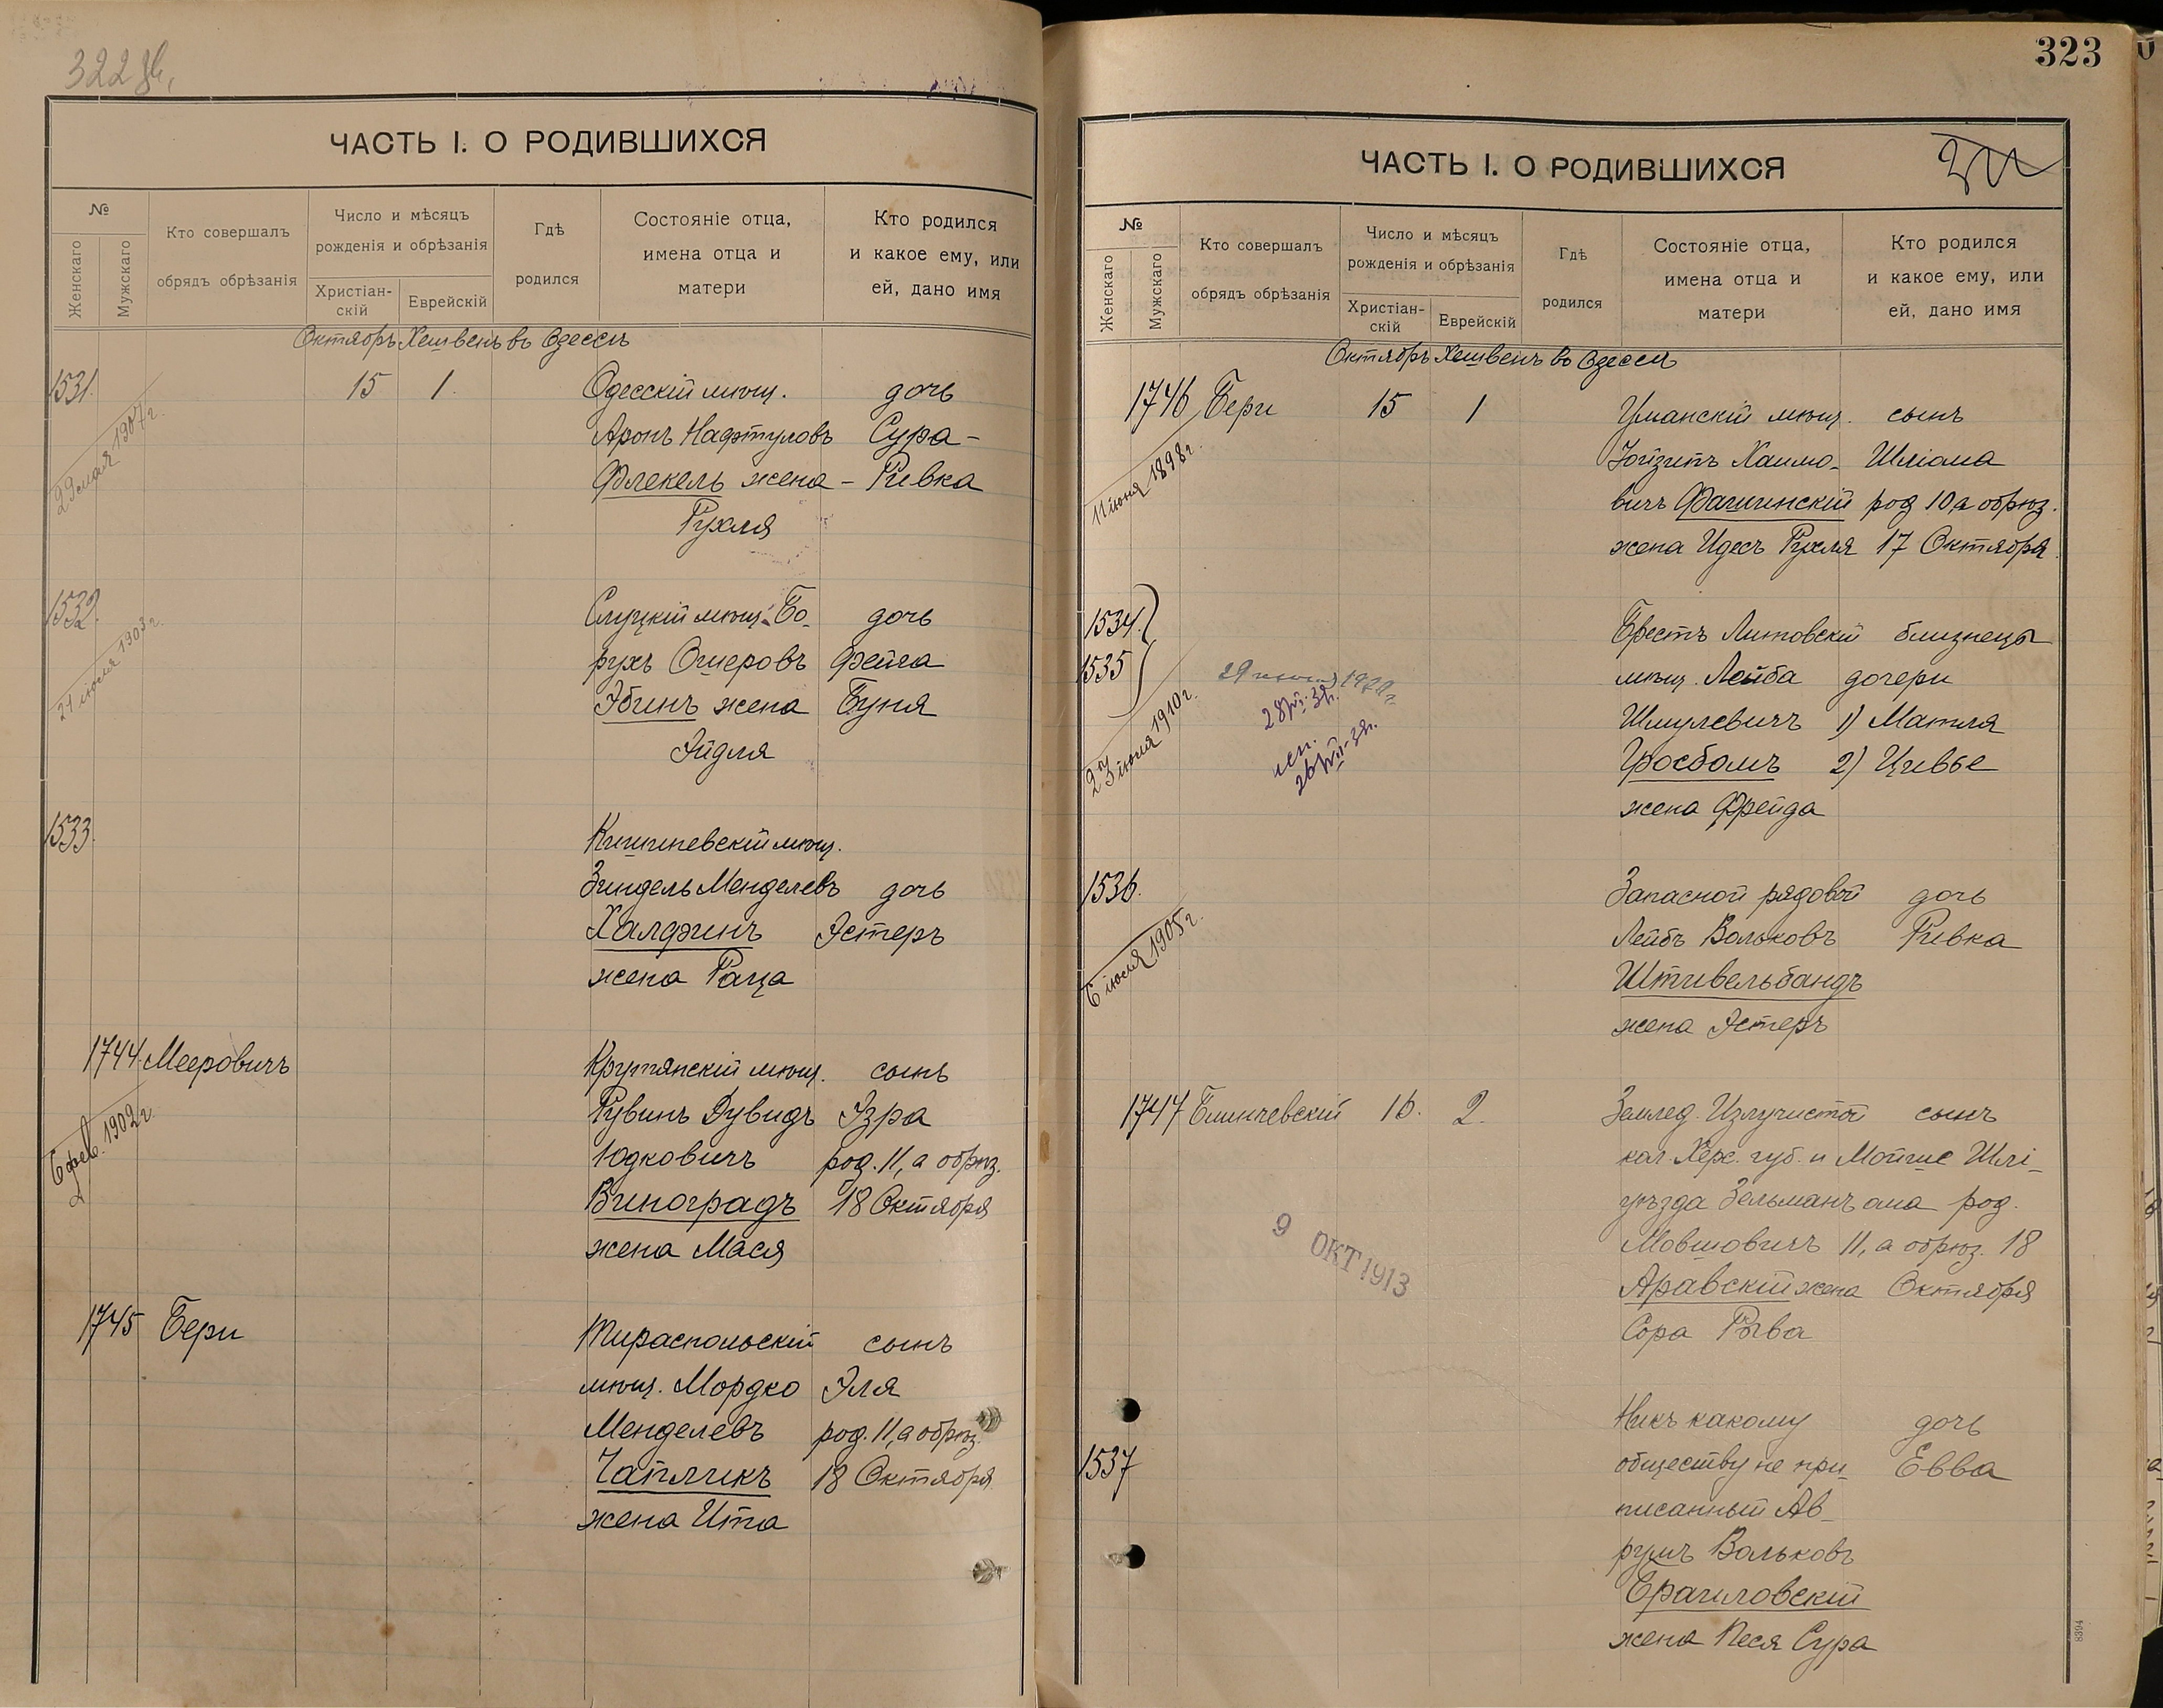 322
ЧАСТЬ I. О РОДИВШИХСЯ
№
Женскаго
Мужскаго
Кто совершалъ
обрядъ обрѣзанія
Число и мѣсяцъ
рожденія и обрѣзанія
Христіан-
скій
Еврейскій
Гдѣ
родился
Состояніе отца,
имена отца и
матери
Кто родился
и какое ему, или
ей, дано имя
Октябрь Хешвень въ Одессѣ
1531. 15 1. Одесскій мѣщ. дочь
29 мая 1907 г.
Аронъ Нафтуловъ Сура-
Флекель жена - Ривка
Рухля
1532. Слуцкій мѣщ. Бо- дочь
21 іюля 1903 г.
рухъ Ошеровъ Фейга
Эбинъ жена Буня
Эйдля
1533. Кишиневскій мѣщ.
Зиндель Менделевъ дочь
Халфинъ Эстеръ
жена Раца
1744. Мееровичъ Крутянскій мѣщ. сынъ
6 фев. 1902 г.
Рувинъ Дувидъ Эзра
Юдковичъ род. 11, а обрѣз.
Виноградъ 18 Октября
жена Мася
1745 Бери Тираспольскій сынъ
мѣщ. Мордко Эля
Менделевъ род. 11, а обрѣз.
Чапликъ 18 Октября
жена Ита
323
ЧАСТЬ I. О РОДИВШИХСЯ
№
Женскаго
Мужскаго
Кто совершалъ
обрядъ обрѣзанія
Число и мѣсяцъ
рожденія и обрѣзанія
Христіан-
скій
Еврейскій
Гдѣ
родился
Состояніе отца,
имена отца и
матери
Кто родился
и какое ему, или
ей, дано имя
Октябрь Хешвень въ Одессѣ
1746 Бери 15 1 Уманскій мѣщ. сынъ
11 іюня 1898 г.
Хаимо- Шліома
вичъ Фашинскій род 10, а обрѣз.
жена Идесъ Рухля 17 Октября
1534. Брестъ Литовскій близнецы
1535 мѣщ. Лейба дочери
23 іюня 1910 г.
Шмулевичъ 1) Матля
Гросбомъ 2) Цивье
жена Фрейда
1536. Запасной рядовой дочь
6 іюля 1905 г.
Лейбъ Вольковъ Ривка
Штивельбандъ
жена Эстеръ
1747 Блинчевскій 16. 2. Землед. Излучистой сынъ
кол. Херс. губ. и Мойше Шлі-
уѣзда Зельманъ ома род.
Мовшовичъ 11, а обрѣз. 18
Аравскій жена Октября
Сора Рыва
9 ОКТ 1913
Никъ какому дочь
1537 обществу не при- Евва
писанный Ав-
румъ Вольковъ
Ерагиловскій
жена Песя Сура
8394